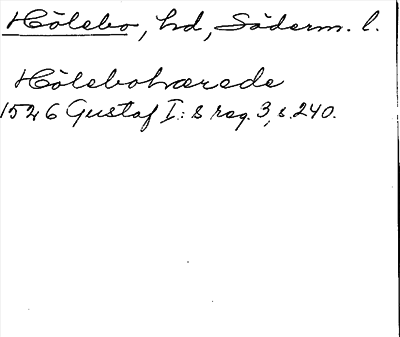 Hölebo, hd, Söderm. l.
Hölebohærede
1526 Gustaf I:s reg. 3, s. 240.